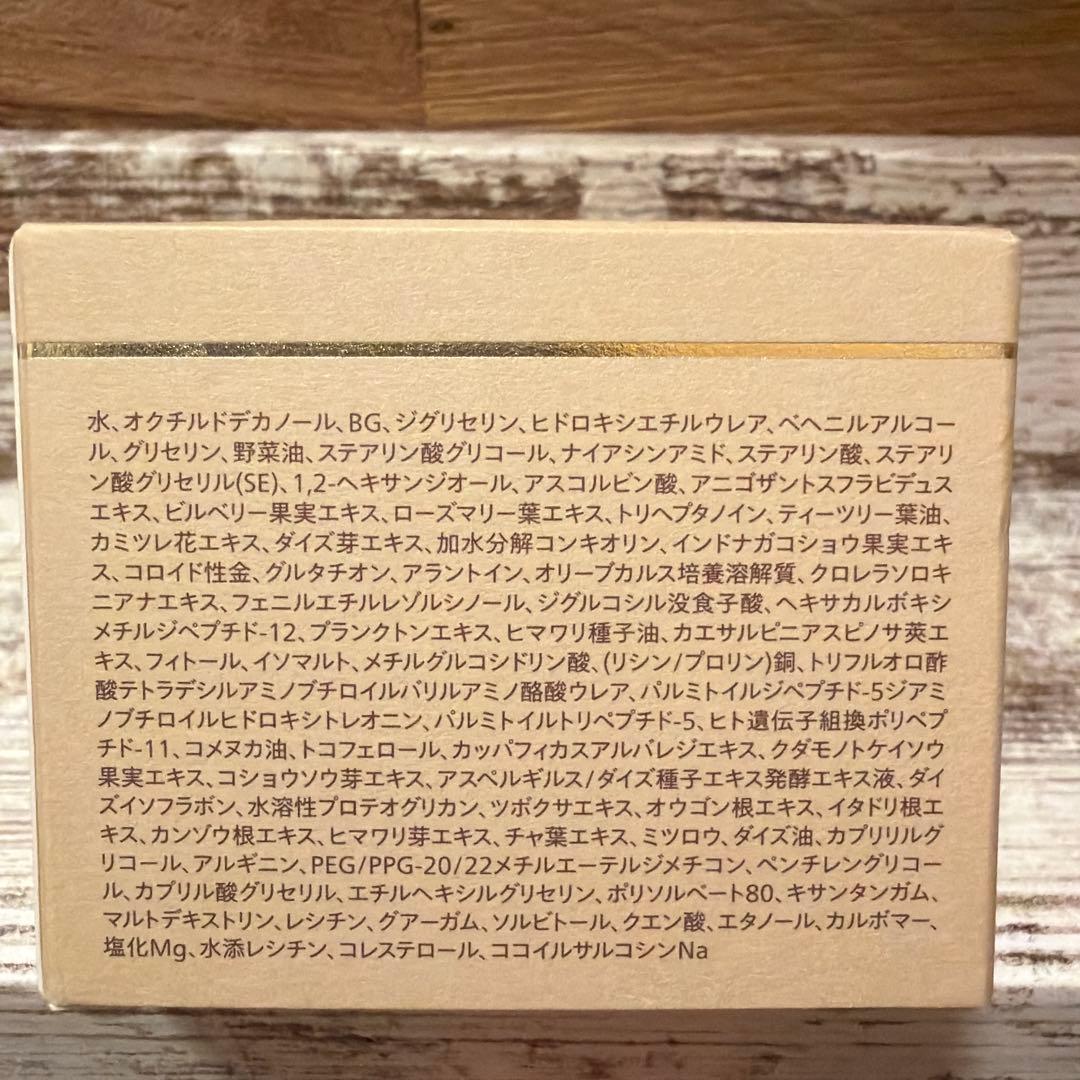 水、オクチルドデカノール、BG、ジグリセリン、ヒドロキシエチルウレア、ベヘニルアルコー
ル、グリセリン、野菜油、ステアリン酸グリコール、ナイアシンアミド、ステアリン酸、ステアリ
ン酸グリセリル(SE)、1,2-ヘキサンジオール、アスコルビン酸、アニゴザントスフラビデュス
エキス、ビルベリー果実エキス、ローズマリー葉エキス、トリヘプタノイン、ティーツリー葉油、
カミツレ花エキス、ダイズ芽エキス、加水分解コンキオリン、インドナガコショウ果実エキ
ス、コロイド性金、グルタチオン、アラントイン、オリーブカルス培養溶解質、クロレラソロキ
ニアナエキス、フェニルエチルレゾルシノール、ジグルコシル没食子酸、ヘキサカルボキシ
メチルジペプチド-12、プランクトンエキス、ヒマワリ種子油、カエサルピニアスピノサ莢エ
キス、フィトール、イソマルト、メチルグルコシドリン酸、(リシン/プロリン)銅、トリフルオロ酢
酸テトラデシルアミノブチロイルバリルアミノ酪酸ウレア、パルミトイルジペプチド-5ジアミ
ノブチロイルヒドロキシトレオニン、パルミトイルトリペプチド-5、ヒト遺伝子組換ポリペプ
チド-11、コメヌカ油、トコフェロール、カッパフィカスアルバレジエキス、クダモノトケイソウ
果実エキス、コショウソウ芽エキス、アスペルギルス/ダイズ種子エキス発酵エキス液、ダイ
ズイソフラボン、水溶性プロテオグリカン、ツボクサエキス、オウゴン根エキス、イタドリ根エ
キス、カンゾウ根エキス、ヒマワリ芽エキス、チャ葉エキス、ミツロウ、ダイズ油、カプリリルグ
リコール、アルギニン、PEG/PPG-20/22メチルエーテルジメチコン、ペンチレングリコー
ル、カプリル酸グリセリル、エチルヘキシルグリセリン、ポリソルベート80、キサンタンガム、
マルトデキストリン、レシチン、グアーガム、ソルビトール、クエン酸、エタノール、カルボマー、
塩化Mg、水添レシチン、コレステロール、ココイルサルコシンNa